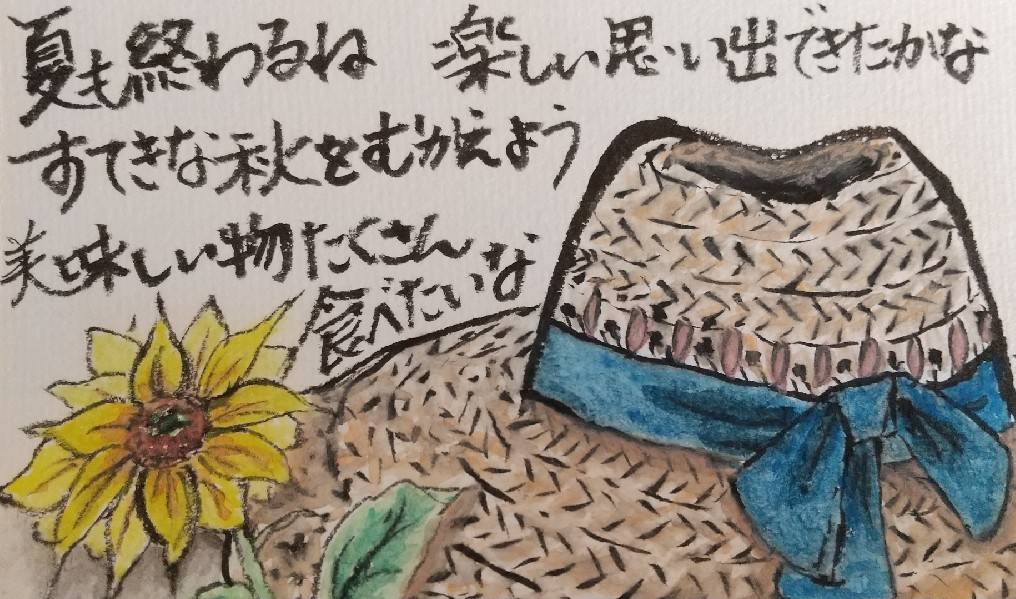 夏も終わるね 楽しい思い出できたかな
すてきな秋をむかえよう
美味しい物たくさん
食べたいな